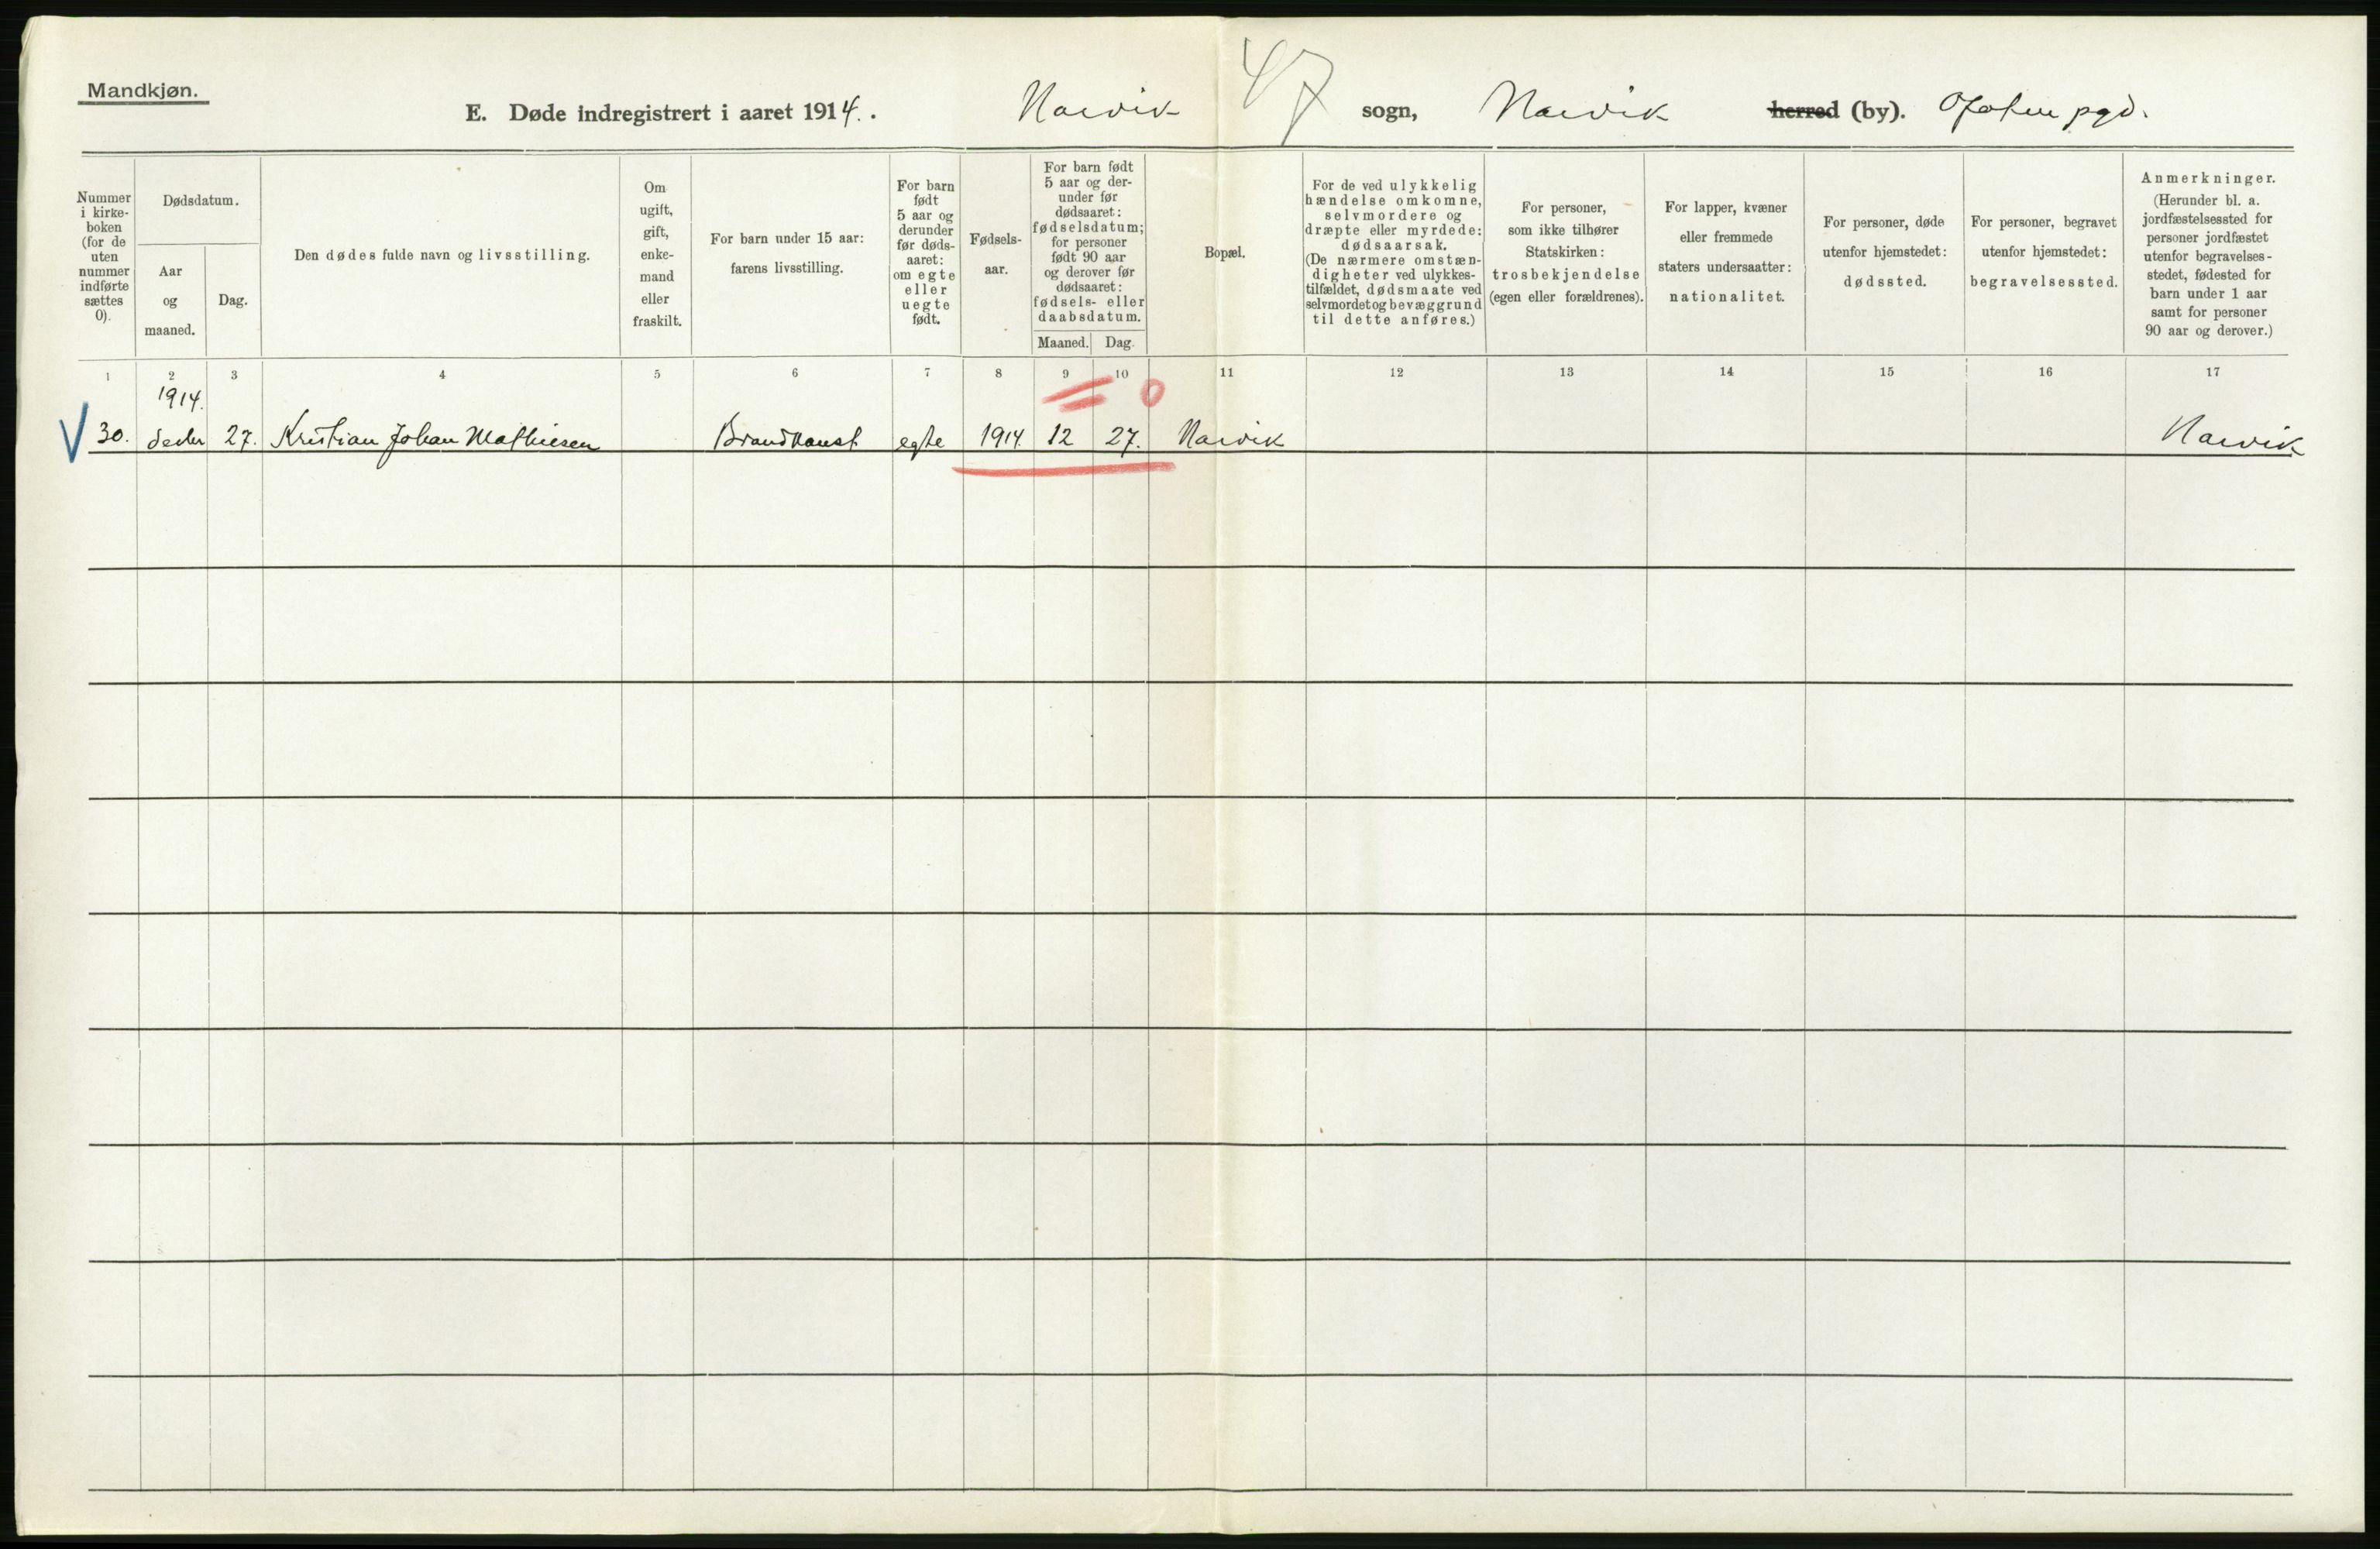 47
Mandkjøn.
E. Døde indregistrert i aaret 1914. . Narvik sogn, Narvik herred (by). Ofoten pgd.
Nummer
i kirke-
boken
(for de
uten
nummer
indførte
sættes
0).
Dødsdatum.
Aar
og
maaned.
Dag.
Den dødes fulde navn og livsstilling.
Om
ugift,
gift,
enke-
mand
eller
fraskilt.
For barn under 15 aar:
farens livsstilling.
For barn
født
5 aar og
derunder
før døds-
aaret:
om egte
eller
uegte
født.
Fødsels-
aar.
For barn født
5 aar og der-
under før
dødsaaret:
fødselsdatum;
for personer
født 90 aar
og derover før
dødsaaret:
fødsels- eller
daabsdatum.
Maaned. Dag.
Bopæl.
For de ved ulykkelig
hændelse omkomne,
selvmordere og
dræpte eller myrdede:
dødsaarsak.
(De nærmere omstæn-
digheter ved ulykkes-
tilfældet, dødsmaate ved
selvmordet og bevæggrund
til dette anføres.)
For personer,
som ikke tilhører
Statskirken:
trosbekjendelse
(egen eller forældrenes).
For lapper, kvæner
eller fremmede
staters undersaatter:
nationalitet.
For personer, døde
utenfor hjemstedet:
dødssted.
For personer, begravet
utenfor hjemstedet:
begravelsessted.
Anmerkninger.
(Herunder bl. a.
jordfæstelsessted for
personer jordfæstet
utenfor begravelses-
stedet, fødested for
barn under 1 aar
samt for personer
90 aar og derover.)
1 2 3 4 5 6 7 8 9 10 11 12 13 14 15 16 17
1914. 0
30. decbr 27. Kristian Johan Mathiesen Brandkonst egte 1914 12 27. Narvik Narvik